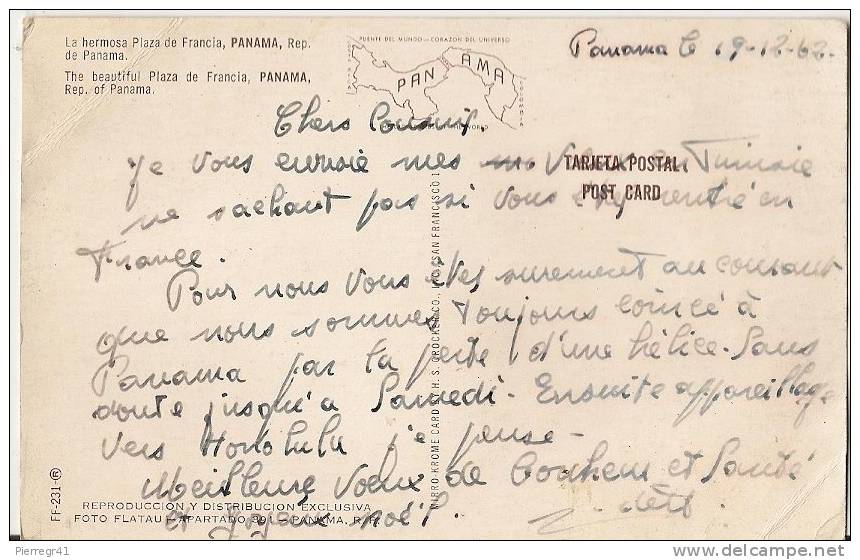 La hermosa Plaza de Francia, PANAMA, Rep.
de Panama.
The beautiful Plaza de Francia, PANAMA,
Rep. of Panama.
PUENTE DEL MUNDO — CORAZON DEL UNIVERSO
PANAMA
Panama le 19-12-62.
TARJETA POSTAL
POST CARD
Chers Cousins
Je vous envoie mes Tunisie
ne sachant pas si vous rentré en
France.
Pour nous vous êtes surement au courant
que nous sommes toujours coincé à
Panama par la perte d'une hélice. Sans
doute jusqu'à Samedi. Ensuite appareillage
vers Honolulu je pense -
Meilleurs Voeux de Bonheur et Santé
et Joyeux noël.
FF-231-®
REPRODUCCION Y DISTRIBUCION EXCLUSIVA
FOTO FLATAU - APARTADO PANAMA, R. P.
MIRRO-KROME CARD BY H. S. CROCKER CO., INC., SAN FRANCISCO 1
Pierregr41
www.delcampe.net